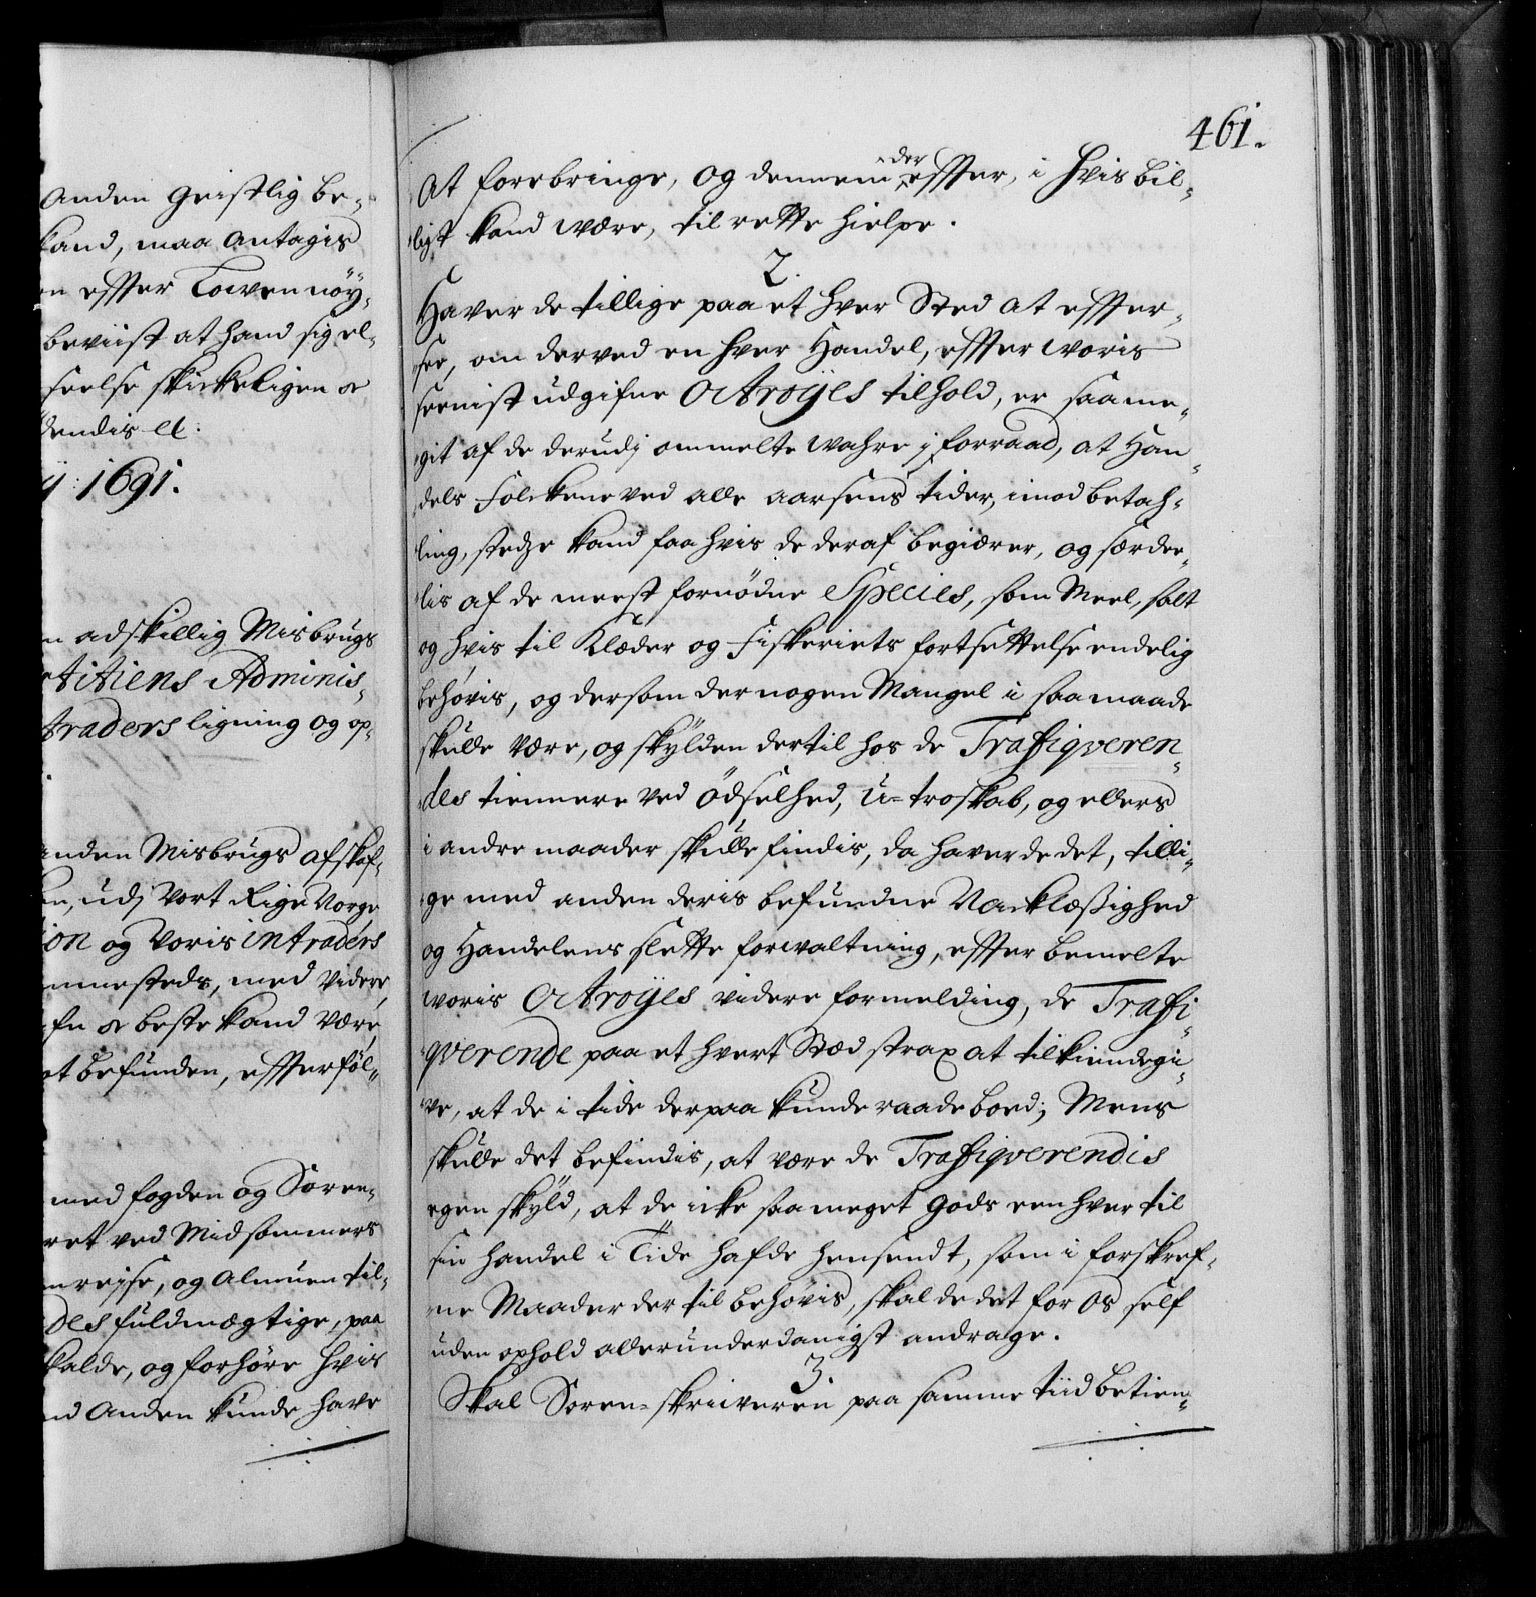 Anden Geistlig be-
kand, maa Antagis
effter Lowen nöy-
beviist at hand sig el-
seelse skickeligen &
dendis &:
1691.
adskillig Misbrugs
titiens Adminis-
traders ligning og op-
anden Misbrugs afskaf-
udj Vort Rige Norge
ion og Voris intraders
med videre
& beste kand være
befunden, effterföl-
med fogden og Soren-
ved Midsommers
reyse, og Almuen til-
des fuldmægtige, paa
kalde, og forhöre hvis
Anden kunde have
461.
At forebringe, og dennem der effter, i hvis bil-
ligt kand være, til rette hielpe.
2.
Haver de tillige paa et hver Sted at effter-
see, om derved en hver Handel, effter woris
seenist udgifne Octroyes tilhold, er saa me-
git af de derudj ommelte wahre j forraad, at Han-
dels Folckene ved alle aarsens tider, imod betah-
ling, stedze kand faa hvis de deraf begiærer, og særdee-
lis af de meest fornödne Species, som Meel, salt
og hvis til Klæder og Fiskeriets fortsettelse endelig
behövis, og dersom der nogen Mangel i saa maade
skulle være, og skylden dertil hos de Trafiqveren-
des tiennere ved ödselhed, U-troskab, og ellers
i andre maader skulle findis, da haver de det, tilli-
ge med anden deris befundne Nachlæßighed
og Handelens slette forwaltning, effter bemelte
woris Octroyes videre formelding, de Trafi-
qverende paa et hvert Stæd strax at tilkiendegi-
ve, at de i tide derpaa kunde raade boed; Mens
skulle det befindis, at være de Trafiqverendis
egen skyld, at de icke saa meget Gods een hver til
sin handel i Tide hafde hensendt, som i forskref-
ne Maader der til behövis, skal de det for Os self
uden ophold allerunderdanigst andrage.
3.
Skal Soren-skriiveren paa samme tiid betien-